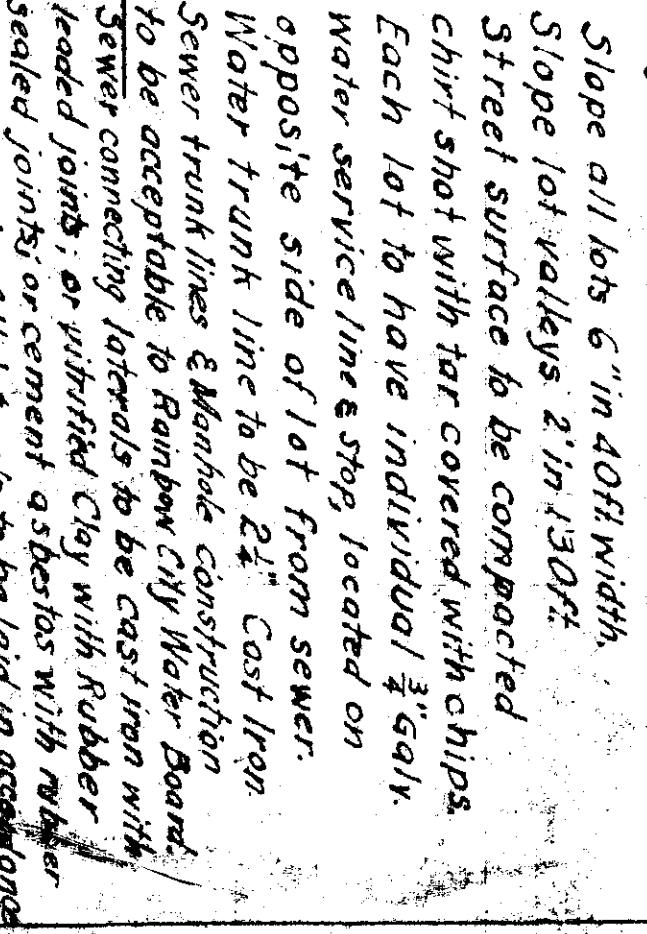 Slope all lots 6" in 40ft. width.
Slope lot valleys 2' in 130ft.
Street surface to be compacted
chirt shot with tar covered with chips.
Each lot to have individual 3/4" Galv.
water service line & stop, located on
opposite side of lot from sewer.
Water trunk line to be 2 1/4" Cast Iron.
Sewer trunk lines & Manhole construction
to be acceptable to Rainbow City Water Board.
Sewer connecting laterals to be cast iron with
leaded joints; or vitrified Clay with Rubber
sealed joints; or cement asbestos with rubber
to be laid in accordance